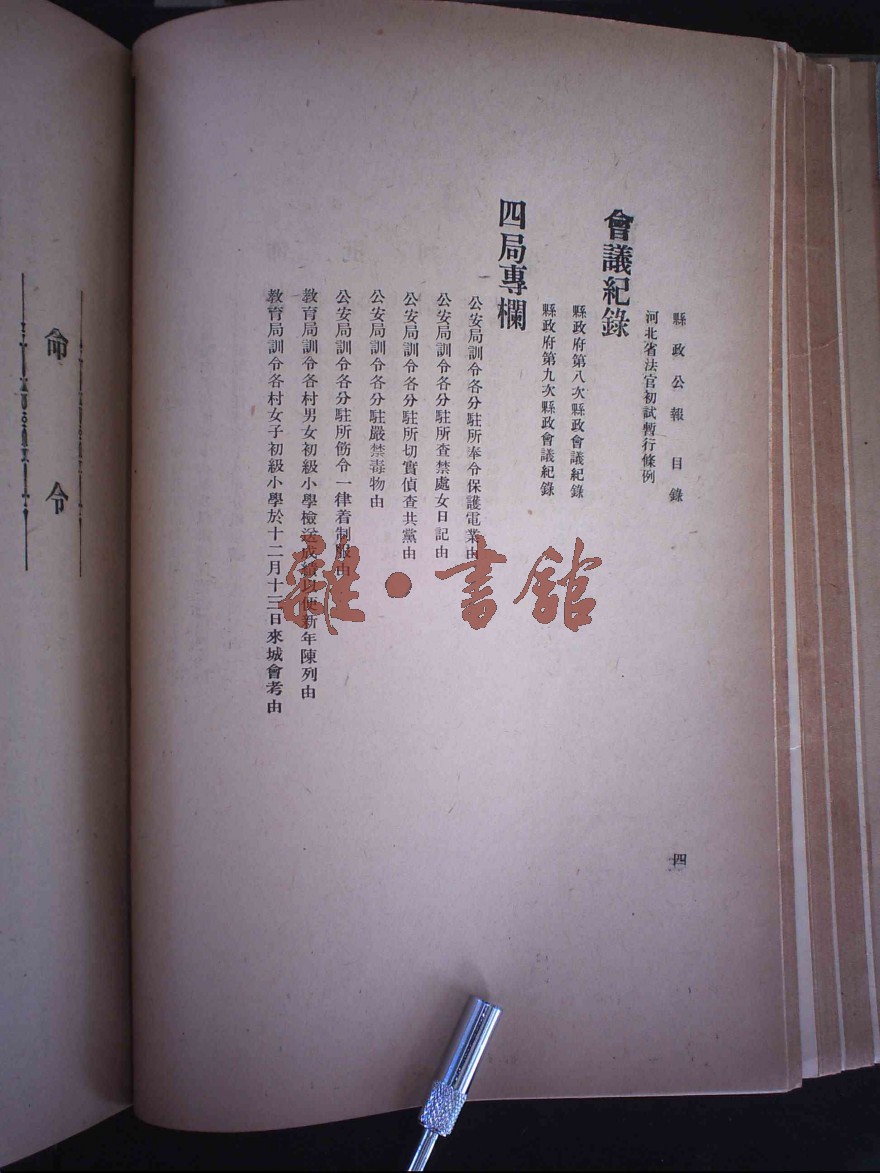 縣政公報目錄
四
河北省法官初試暫行條例
會議紀錄
縣政府第八次縣政會議紀錄
縣政府第九次縣政會議紀錄
四局專欄
公安局訓令各分駐所奉令保護電業由
公安局訓令各分駐所查禁處女日記由
公安局訓令各分駐所切實偵查共黨由
公安局訓令各分駐嚴禁毒物由
公安局訓令各分駐所飭令一律着制服由
教育局訓令各村男女初級小學檢送成績以便新年陳列由
教育局訓令各村女子初級小學於十二月十三日來城會考由
命令
雜·書館